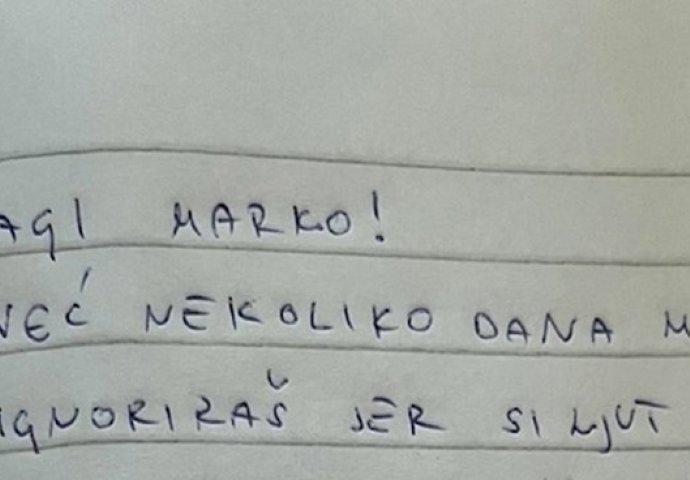 AGI MARKO!
VEĆ NEKOLIKO DANA M
IGNORIRAŠ JER SI LJUT